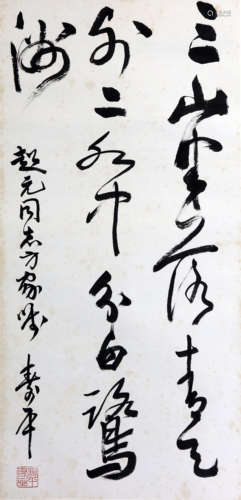 三山半落青天
外二水中分白鷺
洲
元同志方家
壽平